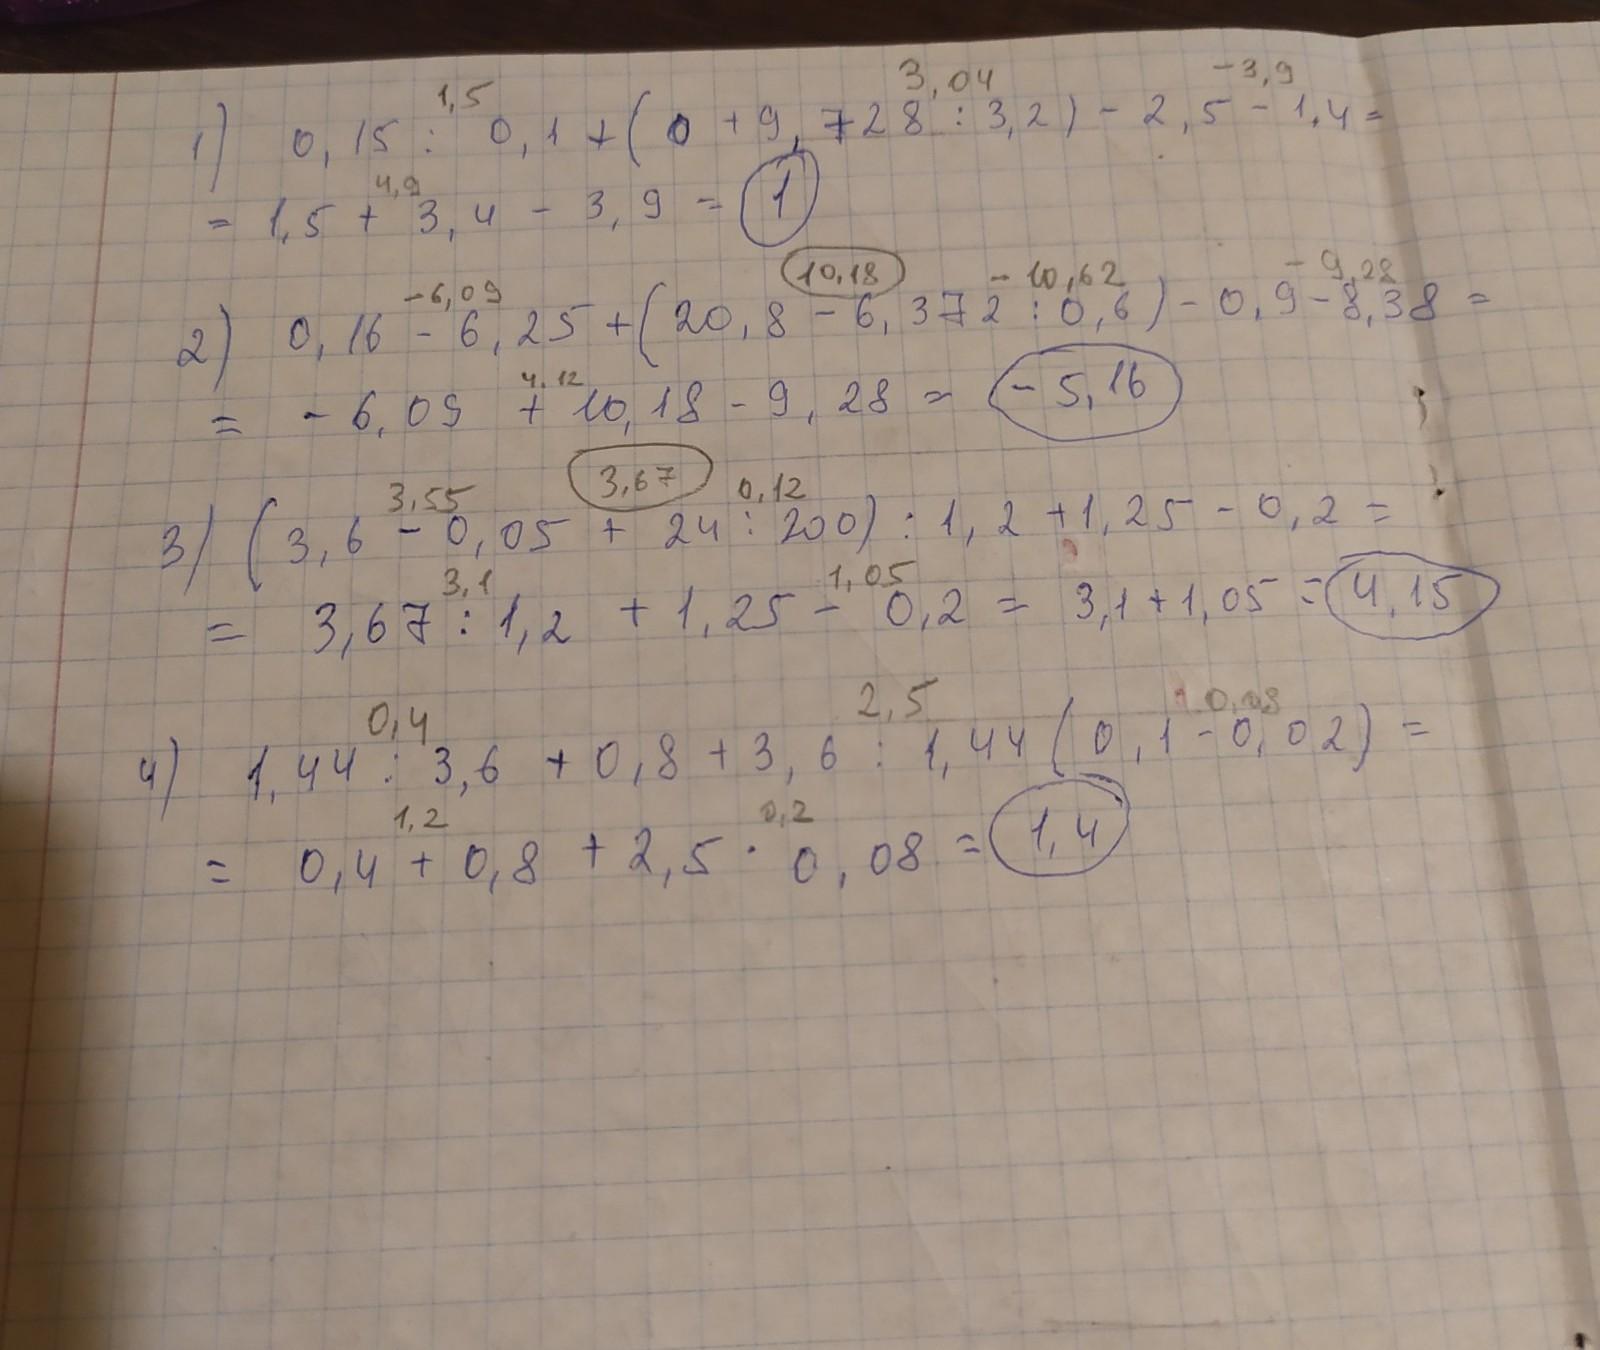 1,5 3,04 -3,9
1) 0,15 : 0,1 + ( 0 + 9,728 : 3,2 ) - 2,5 - 1,4 =
4,9
= 1,5 + 3,4 - 3,9 = 1
-6,09 10,18 - 10,62 - 9,28
2) 0,16 - 6,25 + ( 20,8 - 6,372 : 0,6 ) - 0,9 - 8,38 =
4,12
= - 6,09 + 10,18 - 9,28 = - 5,16
3,55 3,67 0,12
3) ( 3,6 - 0,05 + 24 : 200 ) : 1,2 + 1,25 - 0,2 =
3,1 1,05
= 3,67 : 1,2 + 1,25 - 0,2 = 3,1 + 1,05 = 4,15
0,4 2,5 0,08
4) 1,44 : 3,6 + 0,8 + 3,6 : 1,44 ( 0,1 - 0,02 ) =
1,2 0,2
= 0,4 + 0,8 + 2,5 · 0,08 = 1,4